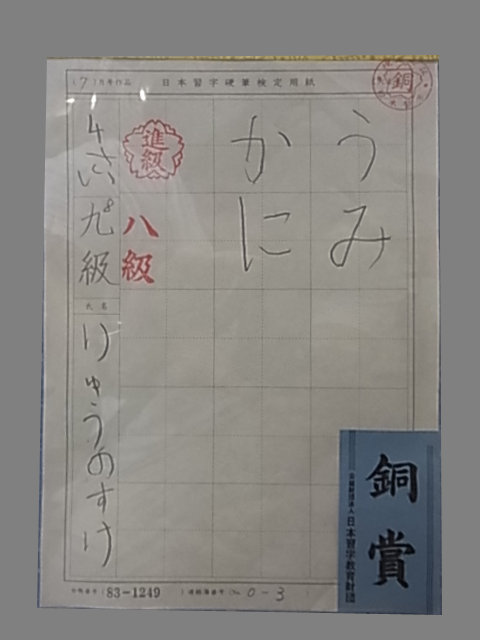 (7)月号作品 日本習字硬筆検定用紙
銅
うみ
かに
進級
八級
4さい
九級
氏名
りゅうのすけ
83-1249
(No. 0-3 )
銅賞
公益財団法人 日本習字教育財団